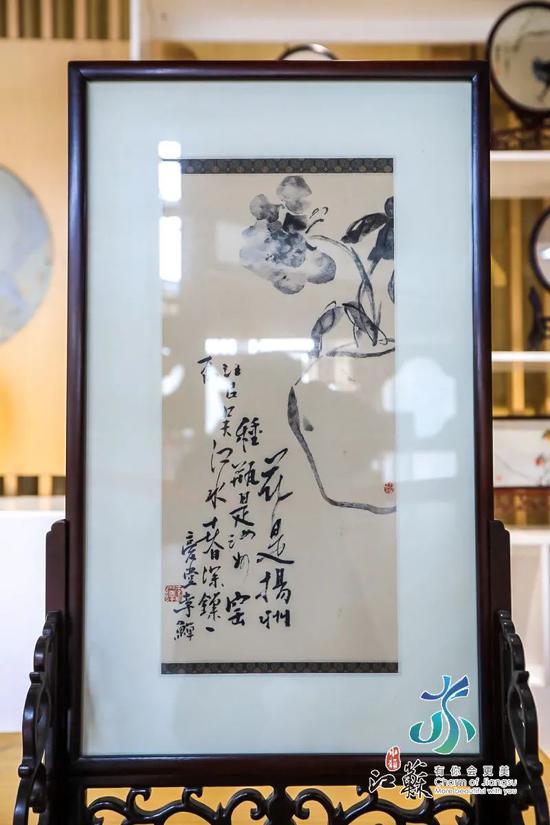 花是揚州
種瓶是汝州窑
注以吳江水春深鎖二
喬
復堂李鱓
水韵
江蘇
有你会更美
Charm of Jiangsu
More beautiful with you